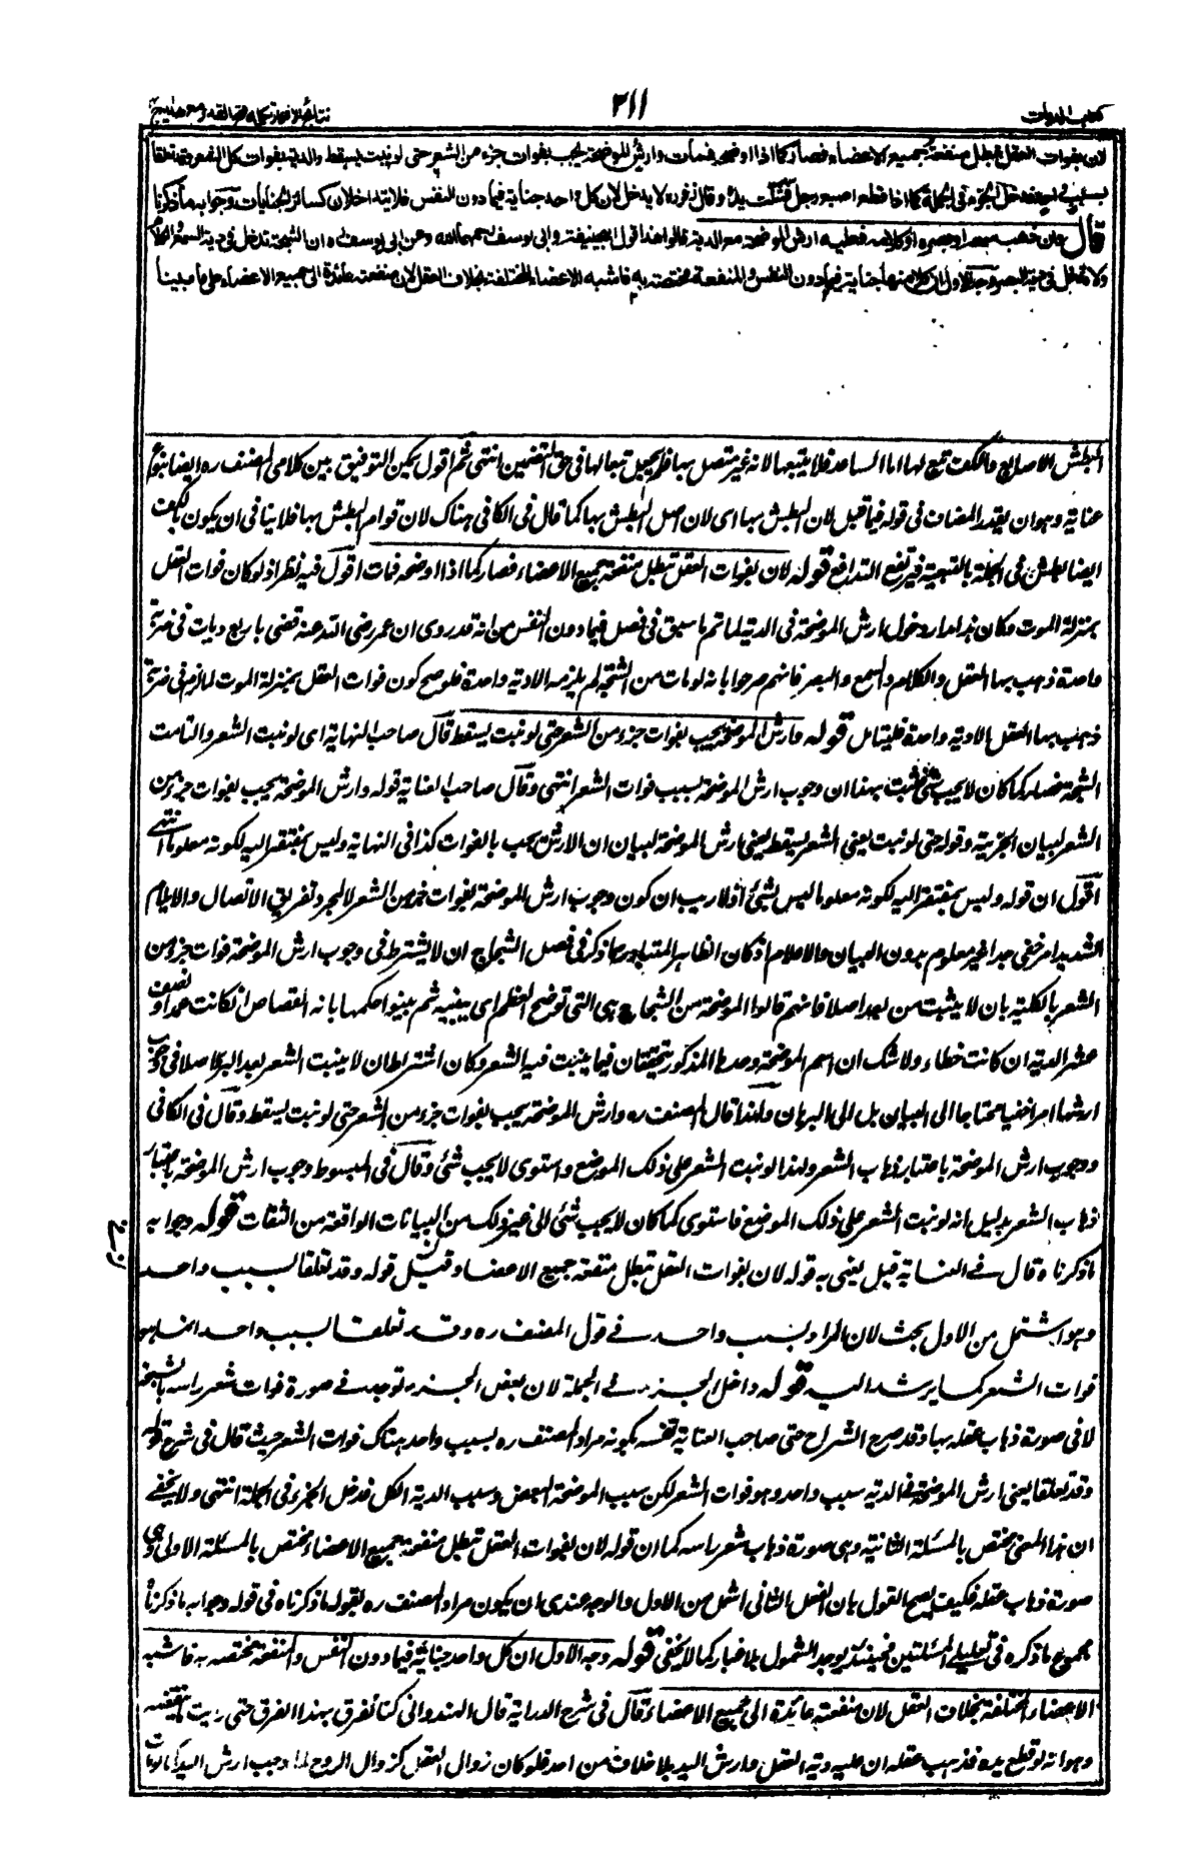 كتاب الديات
٣١١
نتائج الافكار تكملة فتح القدير مع هداية ج
لان بفوات العقل تبطل منفعة جميع الاعضاء فصار كما اذا اوضحه فمات وارش الموضحة يجب بفوات جزء من الشعر حتى لو نبت يسقط والدية بفوات كل الشعر وقد تعلقا
بسبب واحد فدخل الجزء فى الجملة كما اذا قطع اصبع رجل فشلت يده وقال زفر ره لا يدخل لان كل واحد جناية فيما دون النفس فلا يتداخلان كسائر الجنايات وجوابه ما ذكرنا
قال وان ذهب سمعه او بصره او كلامه فعليه ارش الموضحة مع الدية قالوا هذا قول ابيحنيفة وابى يوسف رحمهما الله وعن ابى يوسف ره ان الشجة تدخل فى دية السمع والكلام
ولا تدخل فى دية البصر وجه الاول ان كلا منها جناية فيما دون النفس والمنفعة مختصة به فاشبه الاعضاء المختلفة بخلاف العقل لان منفعته عائدة الى جميع الاعضاء على ما بينا
البطش الاصابع والكف تبع لها اما الساعد فلا يتبعها لانه غير متصل بها فلم يجعل تبعا لها فى حق التضمين انتهى ثم اقول يمكن التوفيق بين كلامى المصنف ره ايضا بنوع
عناية وهو ان يقدر المضاف فى قوله فيما قبل لان البطش بها اى لان اصل البطش بها كما قال فى الكافى هناك لان قوام البطش بها فلا ينافى ان يكون بالكف
ايضا بطش فى الجملة بالتبعية فيرتفع التدافع قوله لان بفوات العقل تبطل منفعة جميع الاعضاء فصار كما اذا اوضحه فمات اقول فيه نظر اذ لو كان فوات العقل
بمنزلة الموت وكان هذا مدار دخول ارش الموضحة فى الدية لما تم ما سبق فى فصل فيما دون النفس من انه قد روى ان عمر رضى الله عنه قضى باربع ديات فى ضربة
واحدة ذهب بها العقل والكلام والسمع والبصر فانهم صرحوا بانه لو مات من الشجة لم يلزمه الا دية واحدة فلو صح كون فوات العقل بمنزلة الموت لما لزم فى ضربة
ذهب بها العقل الا دية واحدة فليتامل قوله وارش الموضحة يجب بفوات جزء من الشعر حتى لو نبت يسقط قال صاحب النهاية اى لو نبت الشعر والتامت
الشجة فصار كما كان لا يجب شئ فثبت بهذا ان وجوب ارش الموضحة بسبب فوات الشعر انتهى وقال صاحب العناية قوله وارش الموضحة يجب بفوات جزء من
الشعر لبيان الجزئية وقوله حتى لو نبت يعنى الشعر يسقط يعنى ارش الموضحة لبيان ان الارش يجب بالفوات كذا فى النهاية وليس بمفتقر اليه لكونه معلوما انتهى
اقول ان قوله وليس بمفتقر اليه لكونه معلوما ليس بشئ اذ لا ريب ان كون وجوب ارش الموضحة بفوات جزء من الشعر لا لمجرد تفريق الاتصال والايلام
الشديد امر خفى جدا غير معلوم بدون البيان والاعلام اذ كان الظاهر المتبادر مما ذكر فى فصل الشجاج ان لا يشترط فى وجوب ارش الموضحة فوات جزء من
الشعر بالكلية بان لا ينبت من بعد اصلا فانهم قالوا الموضحة من الشجاج هى التى توضح العظم اى يبينه ثم بينوا حكمها بانه القصاص ان كانت عمدا ونصف
عشر الدية ان كانت خطاء ولا شك ان اسم الموضحة وحدها المذكور يتحققان فيما ينبت فيه الشعر وكان اشتراط ان لا ينبت الشعر بعد البرء اصلا فى وجوب
ارشها امرا خفيا محتاجا الى البيان بل الى البرهان ولهذا قال المصنف ره وارش الموضحة يجب بفوات جزء من الشعر حتى لو نبت يسقط وقال فى الكافى
ووجوب ارش الموضحة باعتبار ذهاب الشعر ولهذا لو نبت الشعر على ذلك الموضع واستوى لا يجب شئ وقال فى المبسوط وجوب ارش الموضحة باعتبار
ذهاب الشعر بدليل انه لو نبت الشعر على ذلك الموضع فاستوى كما كان لا يجب شئ الى غير ذلك من البيانات الواقعة من الثقات قوله وجوابه
ما ذكرناه قال فى العناية قيل يعنى به قوله لان بفوات العقل تبطل منفعة جميع الاعضاء وقيل قوله وقد تعلقا بسبب واحد
وهو اشتمل من الاول بحث لان المراد بسبب واحد فى قول المصنف ره وقد تعلقا بسبب واحد انما هو
فوات الشعر كما يرشد اليه قوله داخل الجزء فى الجملة لان بعض الجزء توجد فى صورة فوات شعر راسه بالشجة
لا فى صورة ذهاب عقله بها وقد صرح الشراح حتى صاحب العناية نفسه بكونه مراد المصنف ره بسبب واحد هناك فوات الشعر حيث قال فى شرح قوله
وقد تعلقا يعنى ارش الموضحة والدية بسبب واحد وهو فوات الشعر لكن سبب الموضحة البعض وسبب الدية الكل فدخل الجزء فى الجملة انتهى ولا يخفى
ان هذا المعنى مختص بالمسئلة الثانية وهى صورة ذهاب شعر راسه كما ان قوله لان بفوات العقل تبطل منفعة جميع الاعضاء مختص بالمسئلة الاولى وهى
صورة ذهاب عقله فكيف يصح القول بان الفصل الثانى اشمل من الاول والوجه عندى ان يكون مراد المصنف ره بقوله ما ذكرناه فى قوله وجوابه ما ذكرنا
مجموع ما ذكره فى تعليل المسئلتين فحينئذ يوجد الشمول بلا غبار كما لا يخفى قوله وجه الاول ان كل واحد جناية فيما دون النفس والمنفعة مختصة به فاشبه
الاعضاء المختلفة بخلاف العقل لان منفعته عائدة الى جميع الاعضاء قال فى شرح الدراية قال الهندوانى كنا نفرق بهذا الفرق حتى رايت ما ينقضه
وهو انه لو قطع يده فذهب عقله ان عليه دية العقل وارش اليد بلا خلاف من احد فلو كان زوال العقل كزوال الروح لما وجب ارش اليد كما لو مات